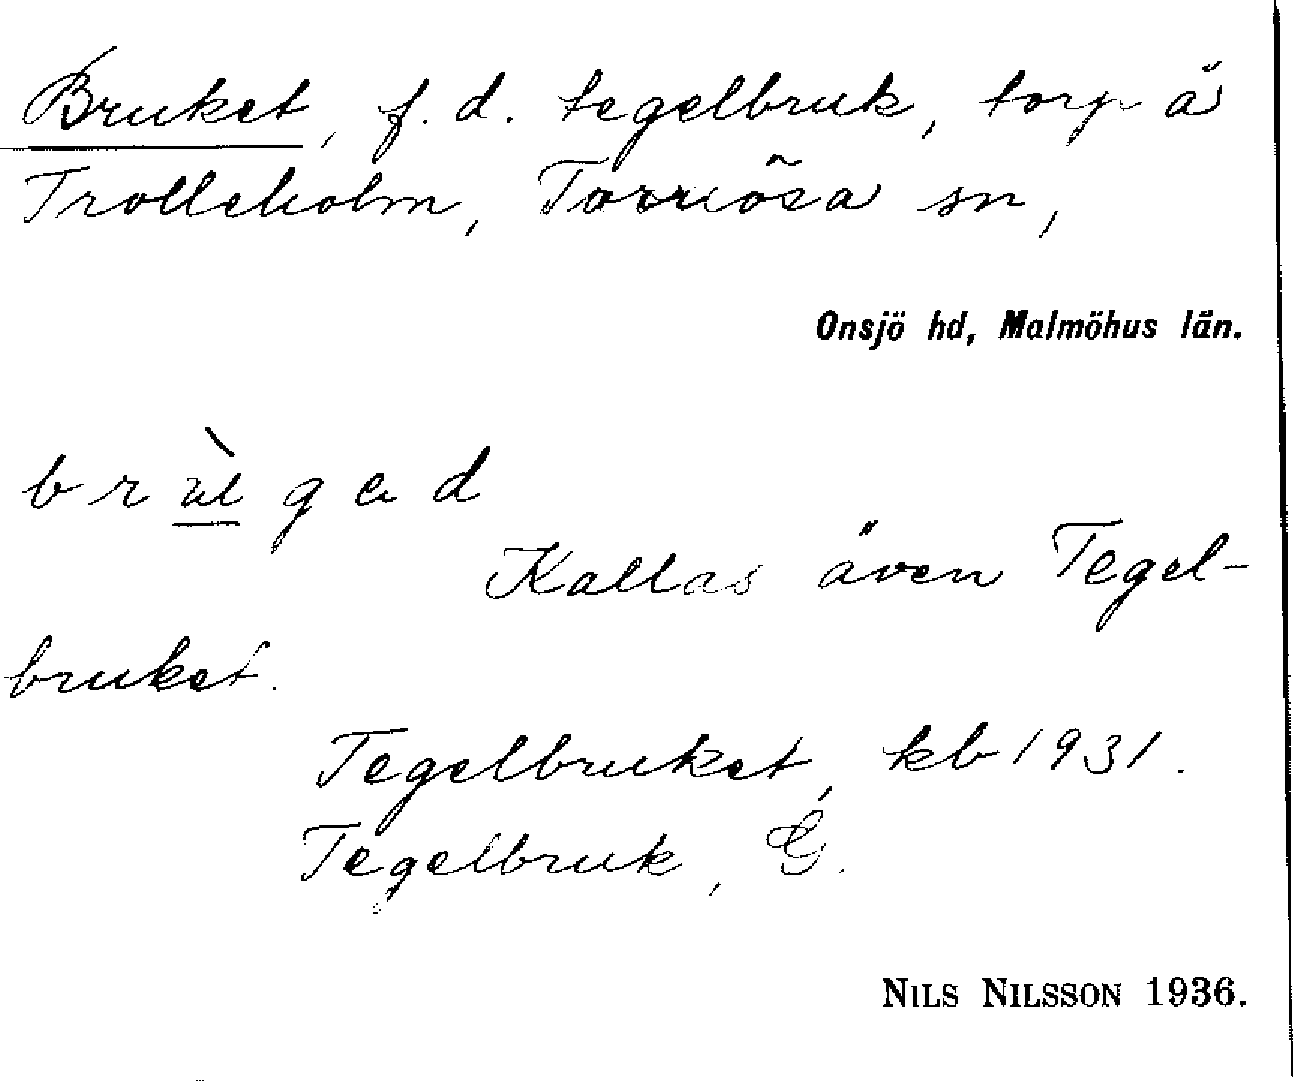 Bruket, f. d. tegelbruk, torp å
Trolleholm, Torrlösa sn,
Onsjö hd, Malmöhus län.
Kallas även Tegel-
bruket.
Tegelbruket, kb 1931.
Tegelbruk, G.
NILS NILSSON 1936.